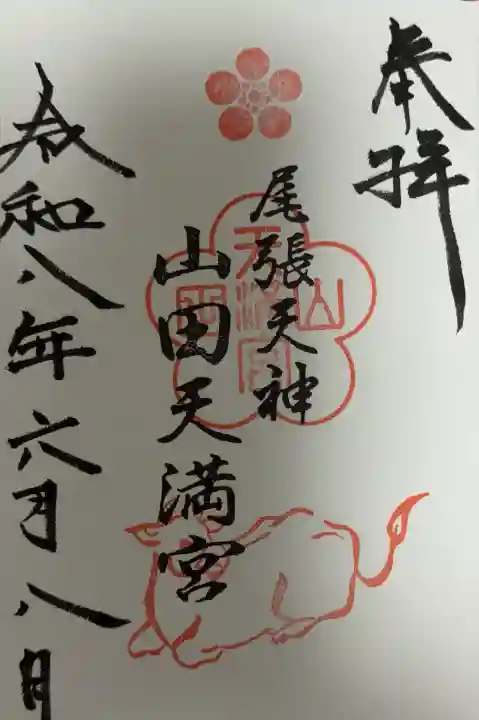 奉拝
尾張天神
山田天満宮
令和八年六月八日